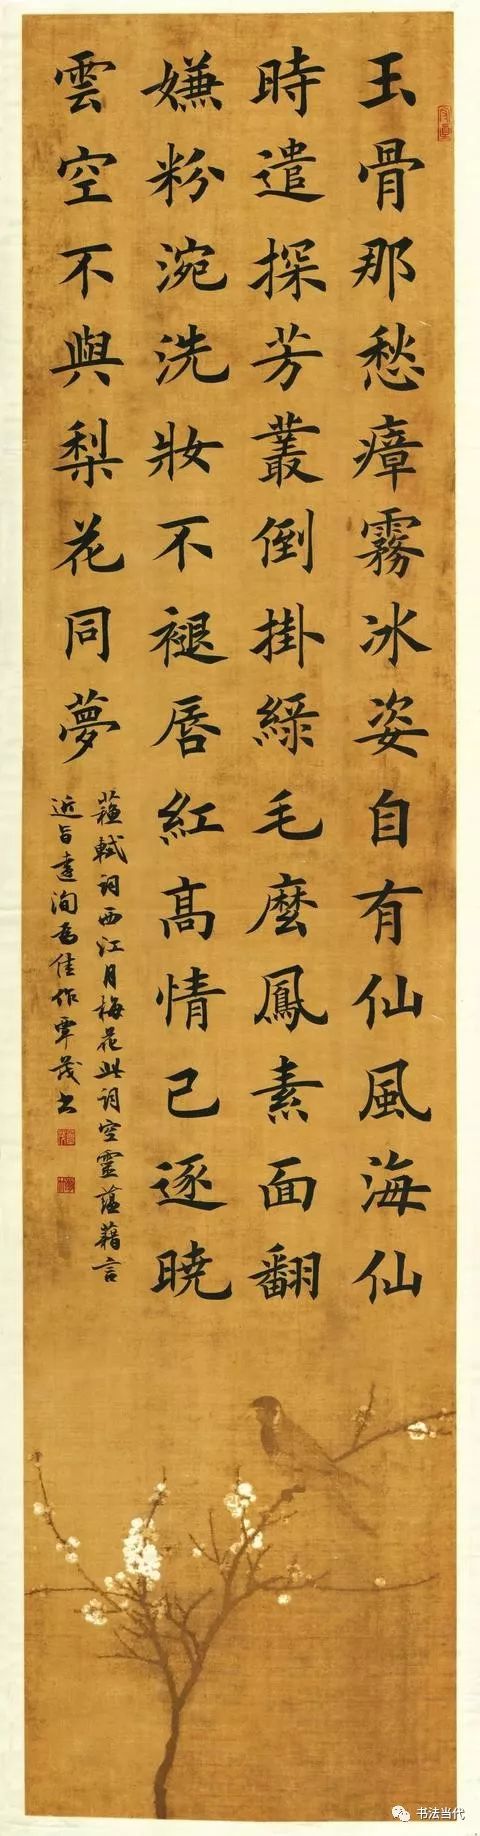 玉骨那愁瘴霧冰姿自有仙風海仙
時遣探芳叢倒掛緑毛麼鳳素面翻
嫌粉涴洗妝不褪唇紅高情已逐曉
雲空不與梨花同夢
蘇軾詞西江月梅花此詞空靈蘊藉言
近旨遠洵為佳作覃茂书
书法当代